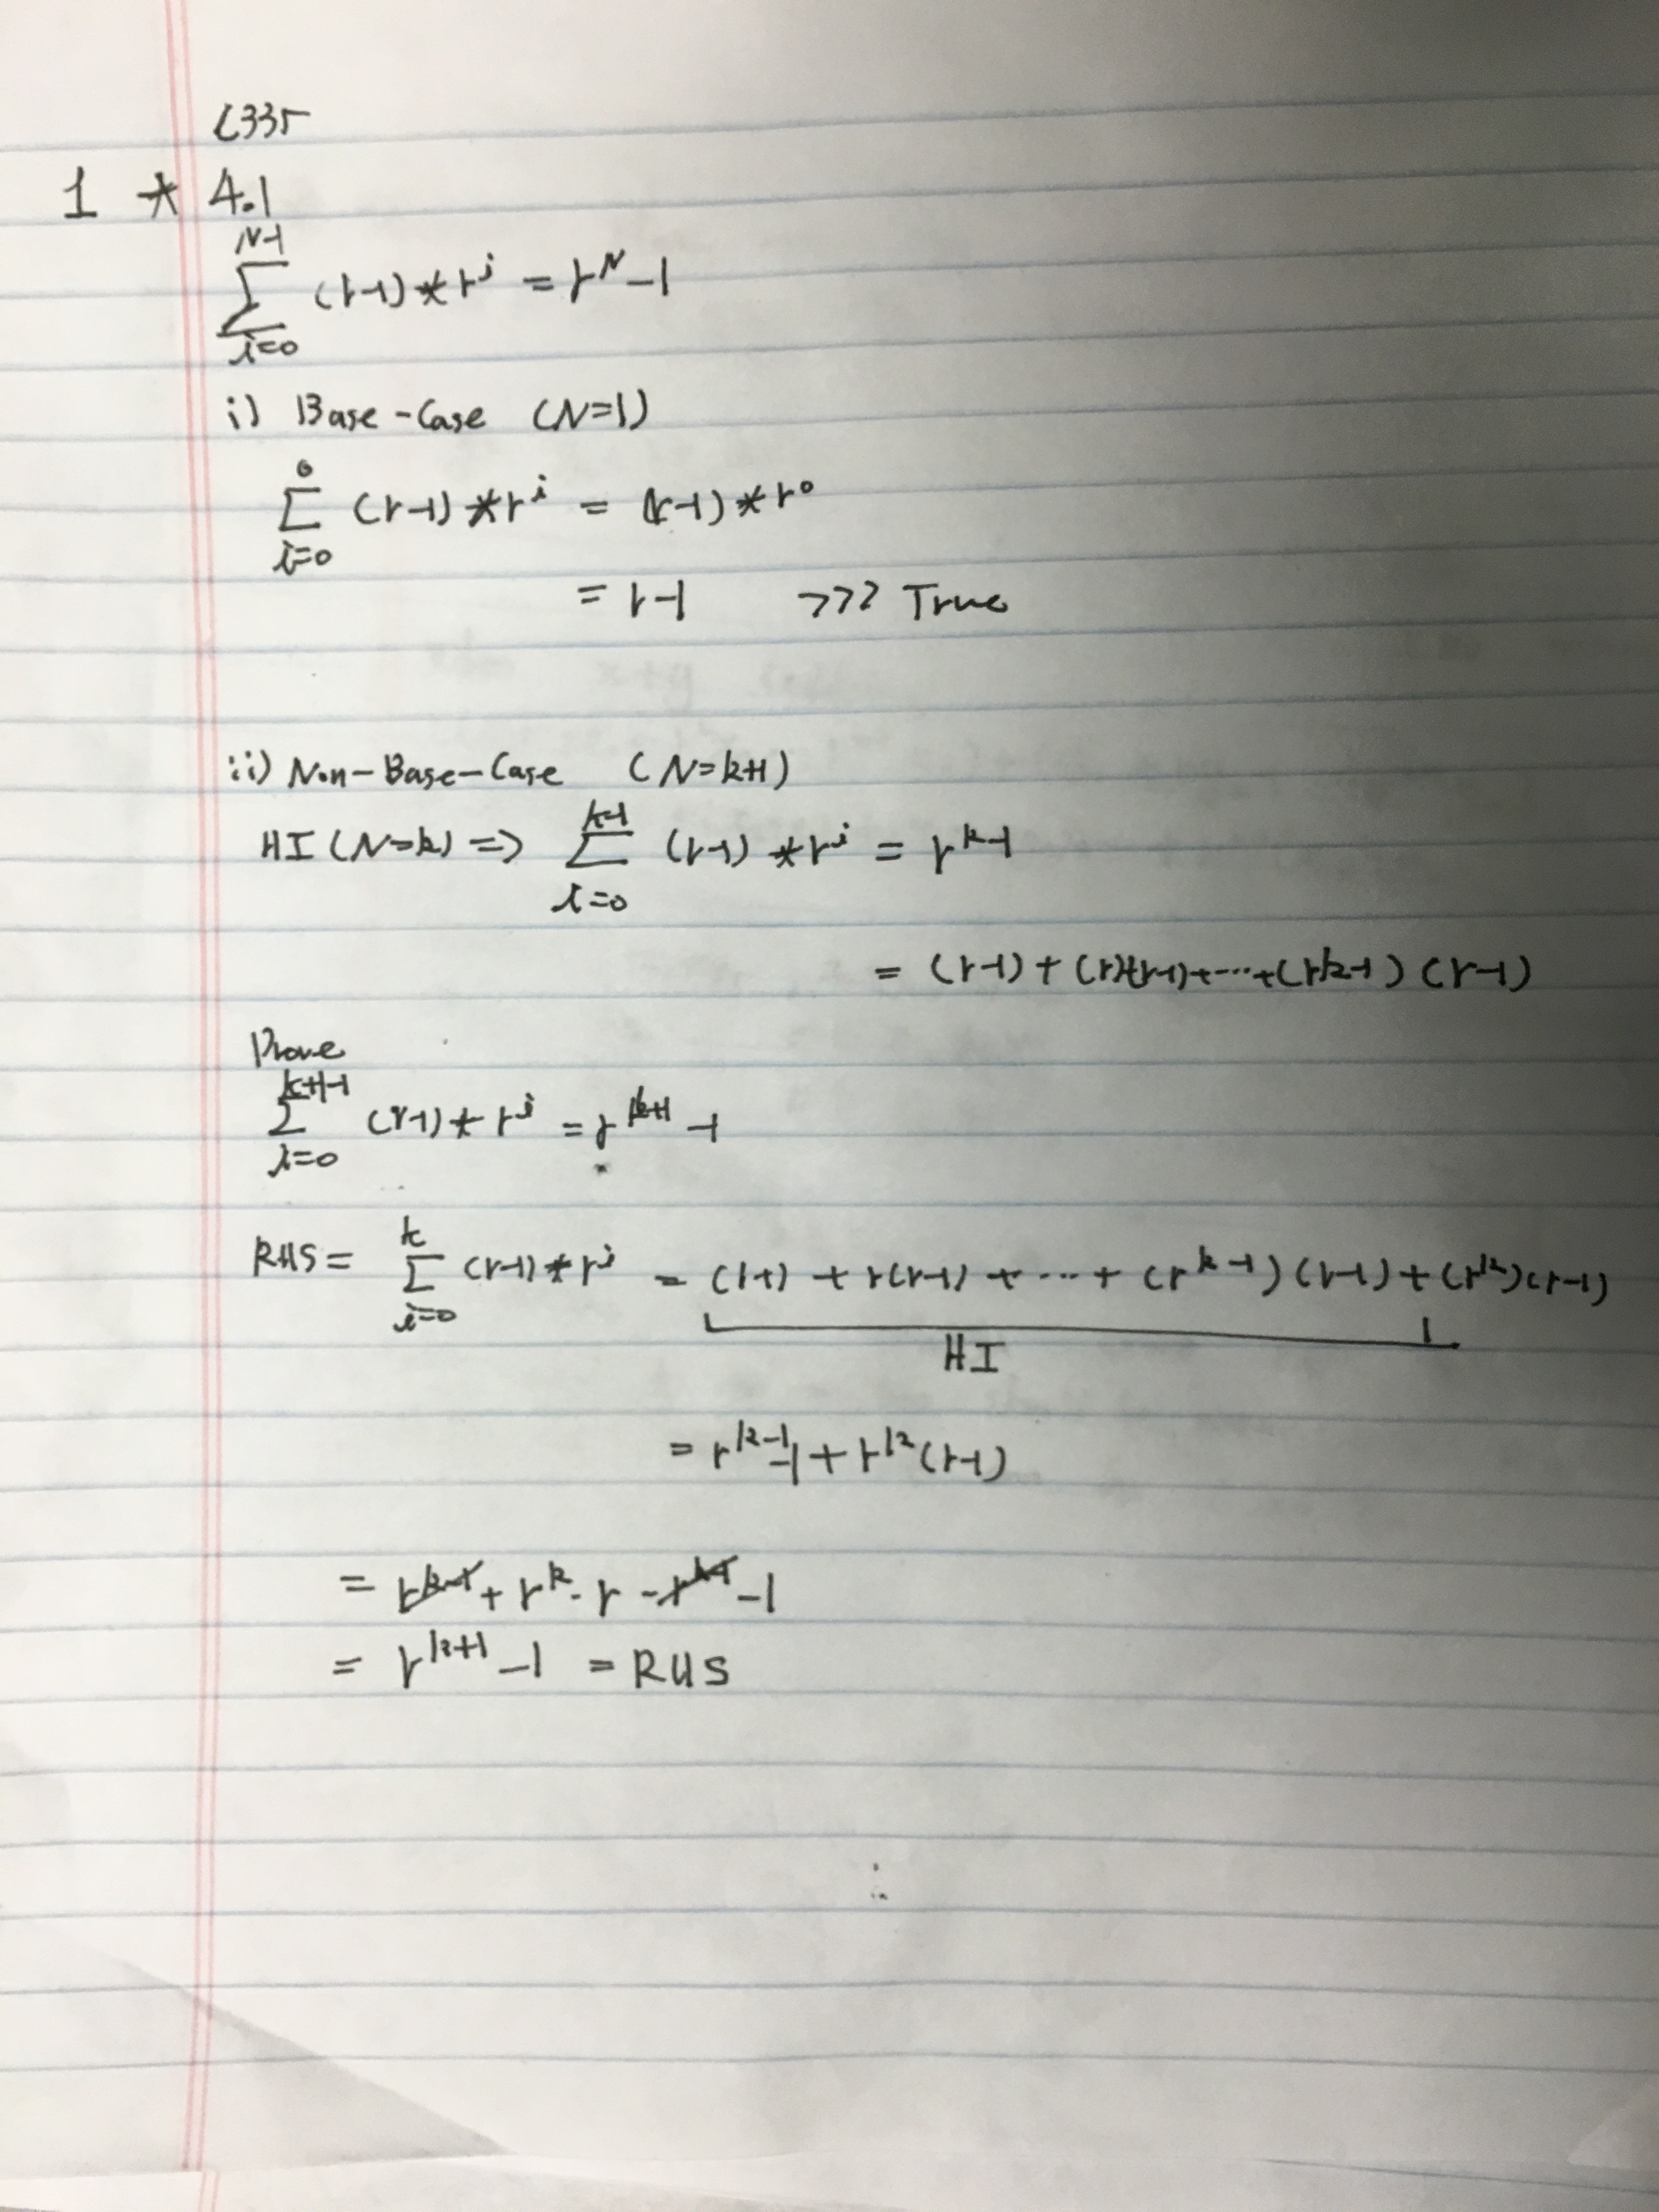 C335
1 * 4.1
N-1
∑ (r-1)*r^i = r^N -1
i=0
i) Base-Case (N=1)
0
∑ (r-1)*r^i = (r-1)*r^0
i=0
= r-1 >>> True
ii) Non-Base-Case (N=k+1)
k-1
HI (N=k) => ∑ (r-1)*r^i = r^k-1
i=0
= (r-1)+(r)(r-1)+...+(r^k-1)(r-1)
Prove
k+1-1
∑ (r-1)*r^i = r^k+1 -1
i=0
k
RHS = ∑ (r-1)*r^i = (r-1) + r(r-1) + ... + (r^k-1)(r-1) + (r^k)(r-1)
i=0
HI
= r^k-1 -1 + r^k(r-1)
= r^k-1 + r^k · r - r^k-1 -1
= r^k+1 -1 = RHS